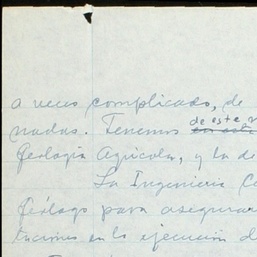 a veces complicado, de
nadas. Tenemos de este
Geología Agrícola, y la de
La Ingeniería
geólogo para asegurar
en la ejecución d